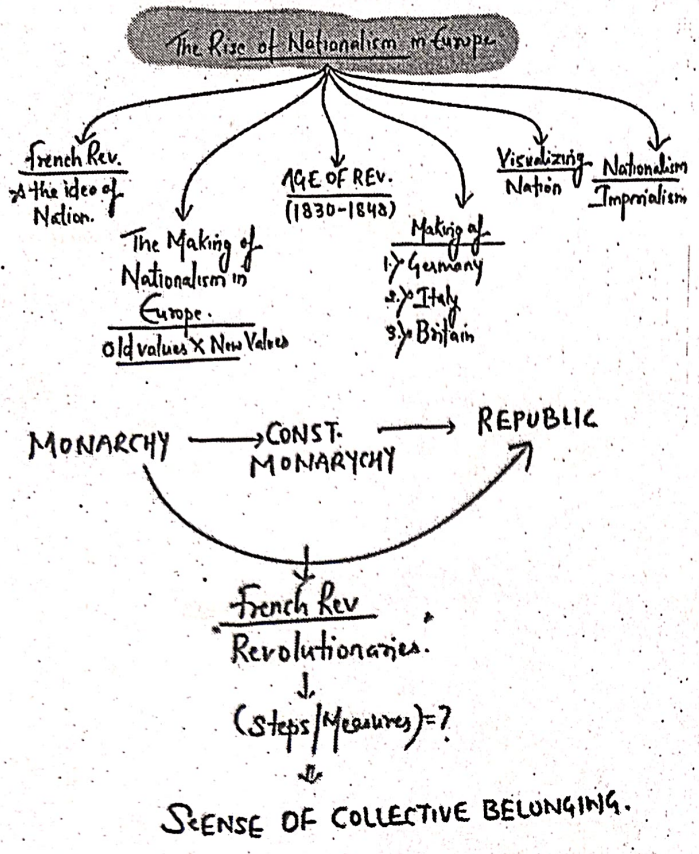 The Rise of Nationalism in Europe
French Rev.
& the idea of
Nation.
The Making of
Nationalism in
Europe.
Old values X New Values
AGE OF REV.
(1830-1848)
Making of
1.) Germany
2.) Italy
3.) Britain
Visualizing
Nation
Nationalism
Imperialism
MONARCHY
CONST.
MONARYCHY
REPUBLIC
French Rev
Revolutionaries.
(Steps/Measures)=?
SEENSE OF COLLECTIVE BELONGING.